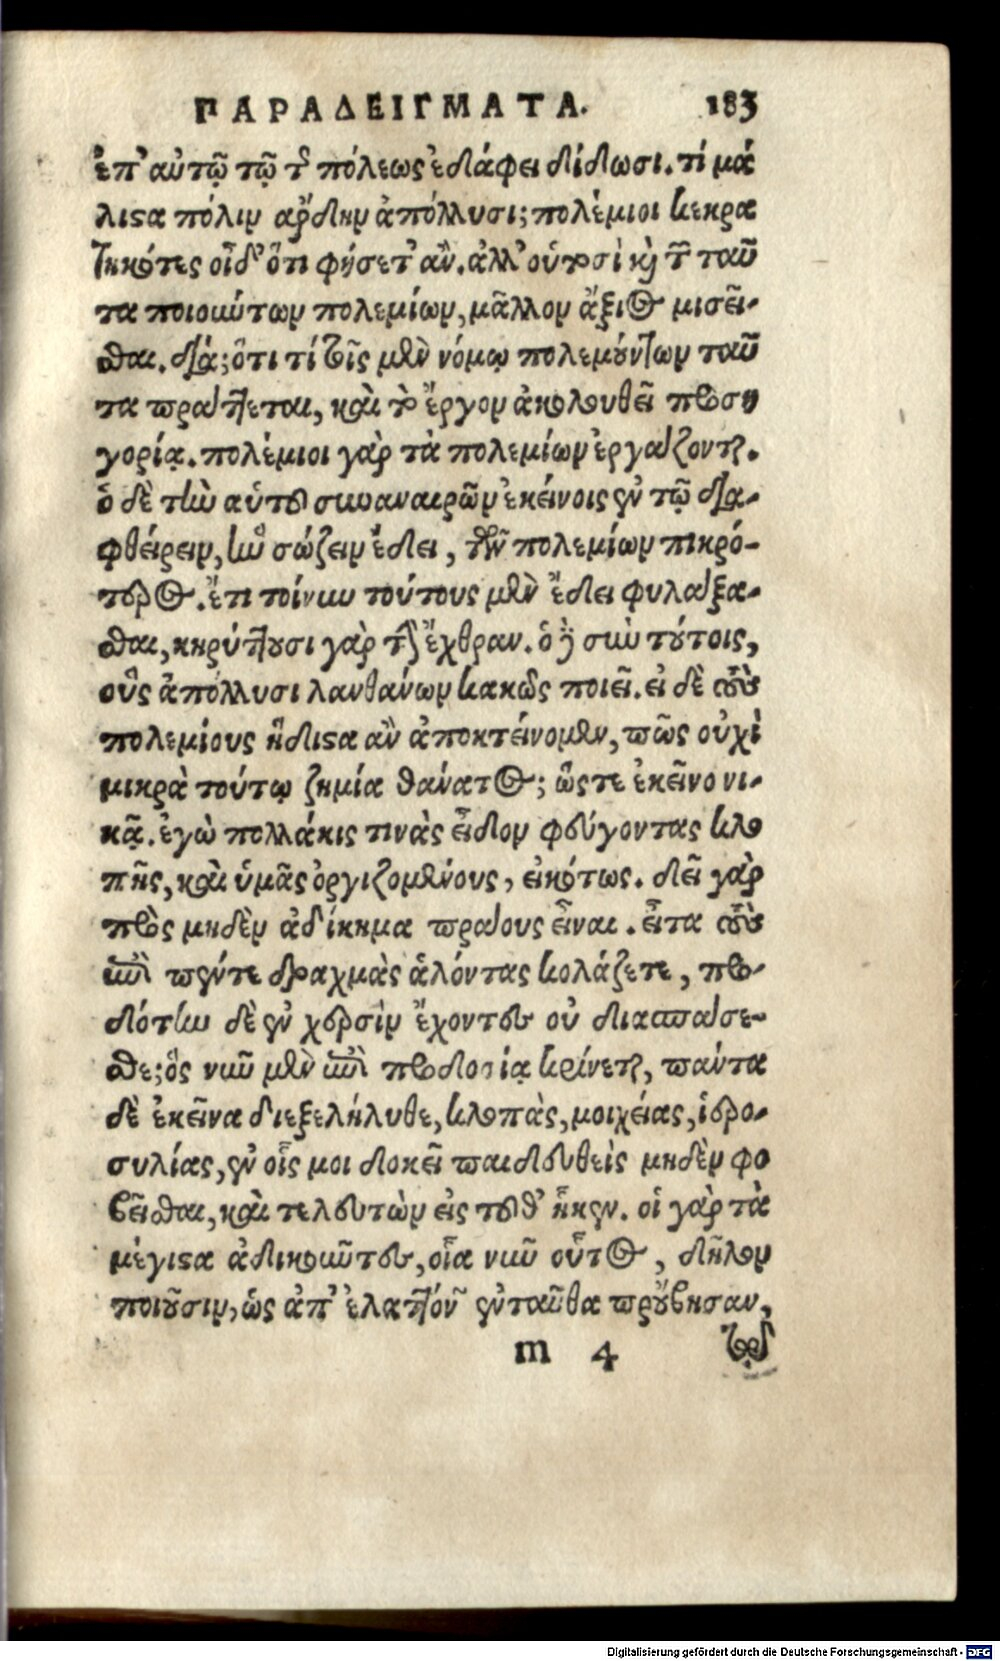 ΠΑΡΑΔΕΙΓΜΑΤΑ. 183
ἐπ' αὐτῷ τῷ τῆς πόλεως ἐδάφει δίδωσι. τί μά
λιστα πόλιν ἄρδην ἀπόλλυσι; πολέμιοι κεκρα
τηκότες οἶδ' ὅτι φήσετ' ἄν. ἀλλ' οὗτοσὶ καὶ τῶν ταῦ
τα ποιούντων πολεμίων, μᾶλλον ἄξιος μισεῖ-
σθαι. διά; ὅτι τί τοῖς μὲν νόμῳ πολεμούντων ταῦ
τα πράττεται, καὶ τὸ ἔργον ἀκολουθεῖ προση
γορίᾳ. πολέμιοι γὰρ τὰ πολεμίων ἐργάζονται.
ὁ δὲ τὴν αὑτοῦ συναναιρῶν ἐκείνοις ἐν τῷ δια-
φθείρειν, ἣν σώζειν ἔδει, τῶν πολεμίων πικρό-
τερος. ἔτι τοίνυν τούτους μὲν ἔδει φυλάξα-
σθαι, κηρύττουσι γὰρ τὴν ἔχθραν. ὁ δὲ σὺν τούτοις,
οὓς ἀπόλλυσι λανθάνων κακῶς ποιεῖ. εἰ δὲ τοὺς
πολεμίους ἥδιστα ἂν ἀποκτείνομεν, πῶς οὐχὶ
μικρὰ τούτῳ ζημία θάνατος; ὥστε ἐκεῖνο νι-
κᾷ. ἐγὼ πολλάκις τινὰς εἶδον φεύγοντας κλο
πῆς, καὶ ὑμᾶς ὀργιζομένους, εἰκότως. δεῖ γὰρ
πρὸς μηδὲν ἀδίκημα πράους εἶναι. εἶτα τοὺς
ἐπὶ πέντε δραχμὰς ἁλόντας κολάζετε, προ-
δότην δὲ ἐν χερσὶν ἔχοντες οὐ διασπάσε-
σθε; ὃς νῦν μὲν ἐπὶ προδοσίᾳ κρίνεται, πάντα
δὲ ἐκεῖνα διεξελήλυθε, κλοπὰς, μοιχείας, ἱερο-
συλίας, ἐν οἷς μοι δοκεῖ παιδευθεὶς μηδὲν φο
βεῖσθαι, καὶ τελευτῶν εἰς τοῦθ' ἥκειν. οἱ γὰρ τὰ
μέγιστα ἀδικοῦντες, οἷα νῦν οὗτος, δῆλον
ποιοῦσιν, ὡς ἀπ' ἐλαττόνων ἐνταῦθα προὔβησαν,
m 4
Digitalisierung gefördert durch die Deutsche Forschungsgemeinschaft - DFG